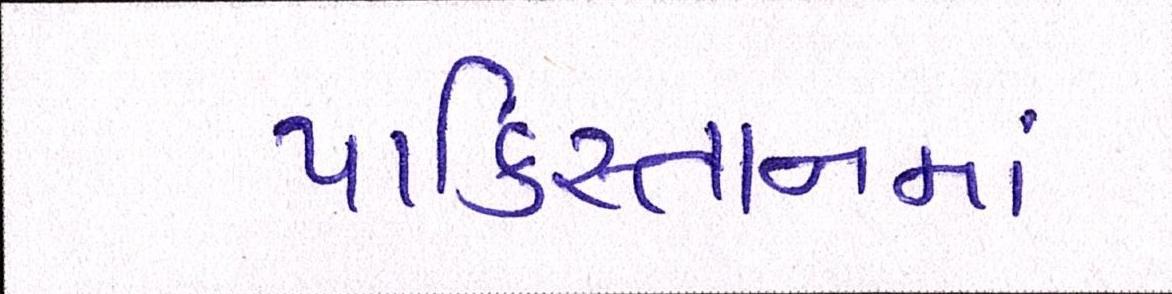 પાકિસ્તાનમાં